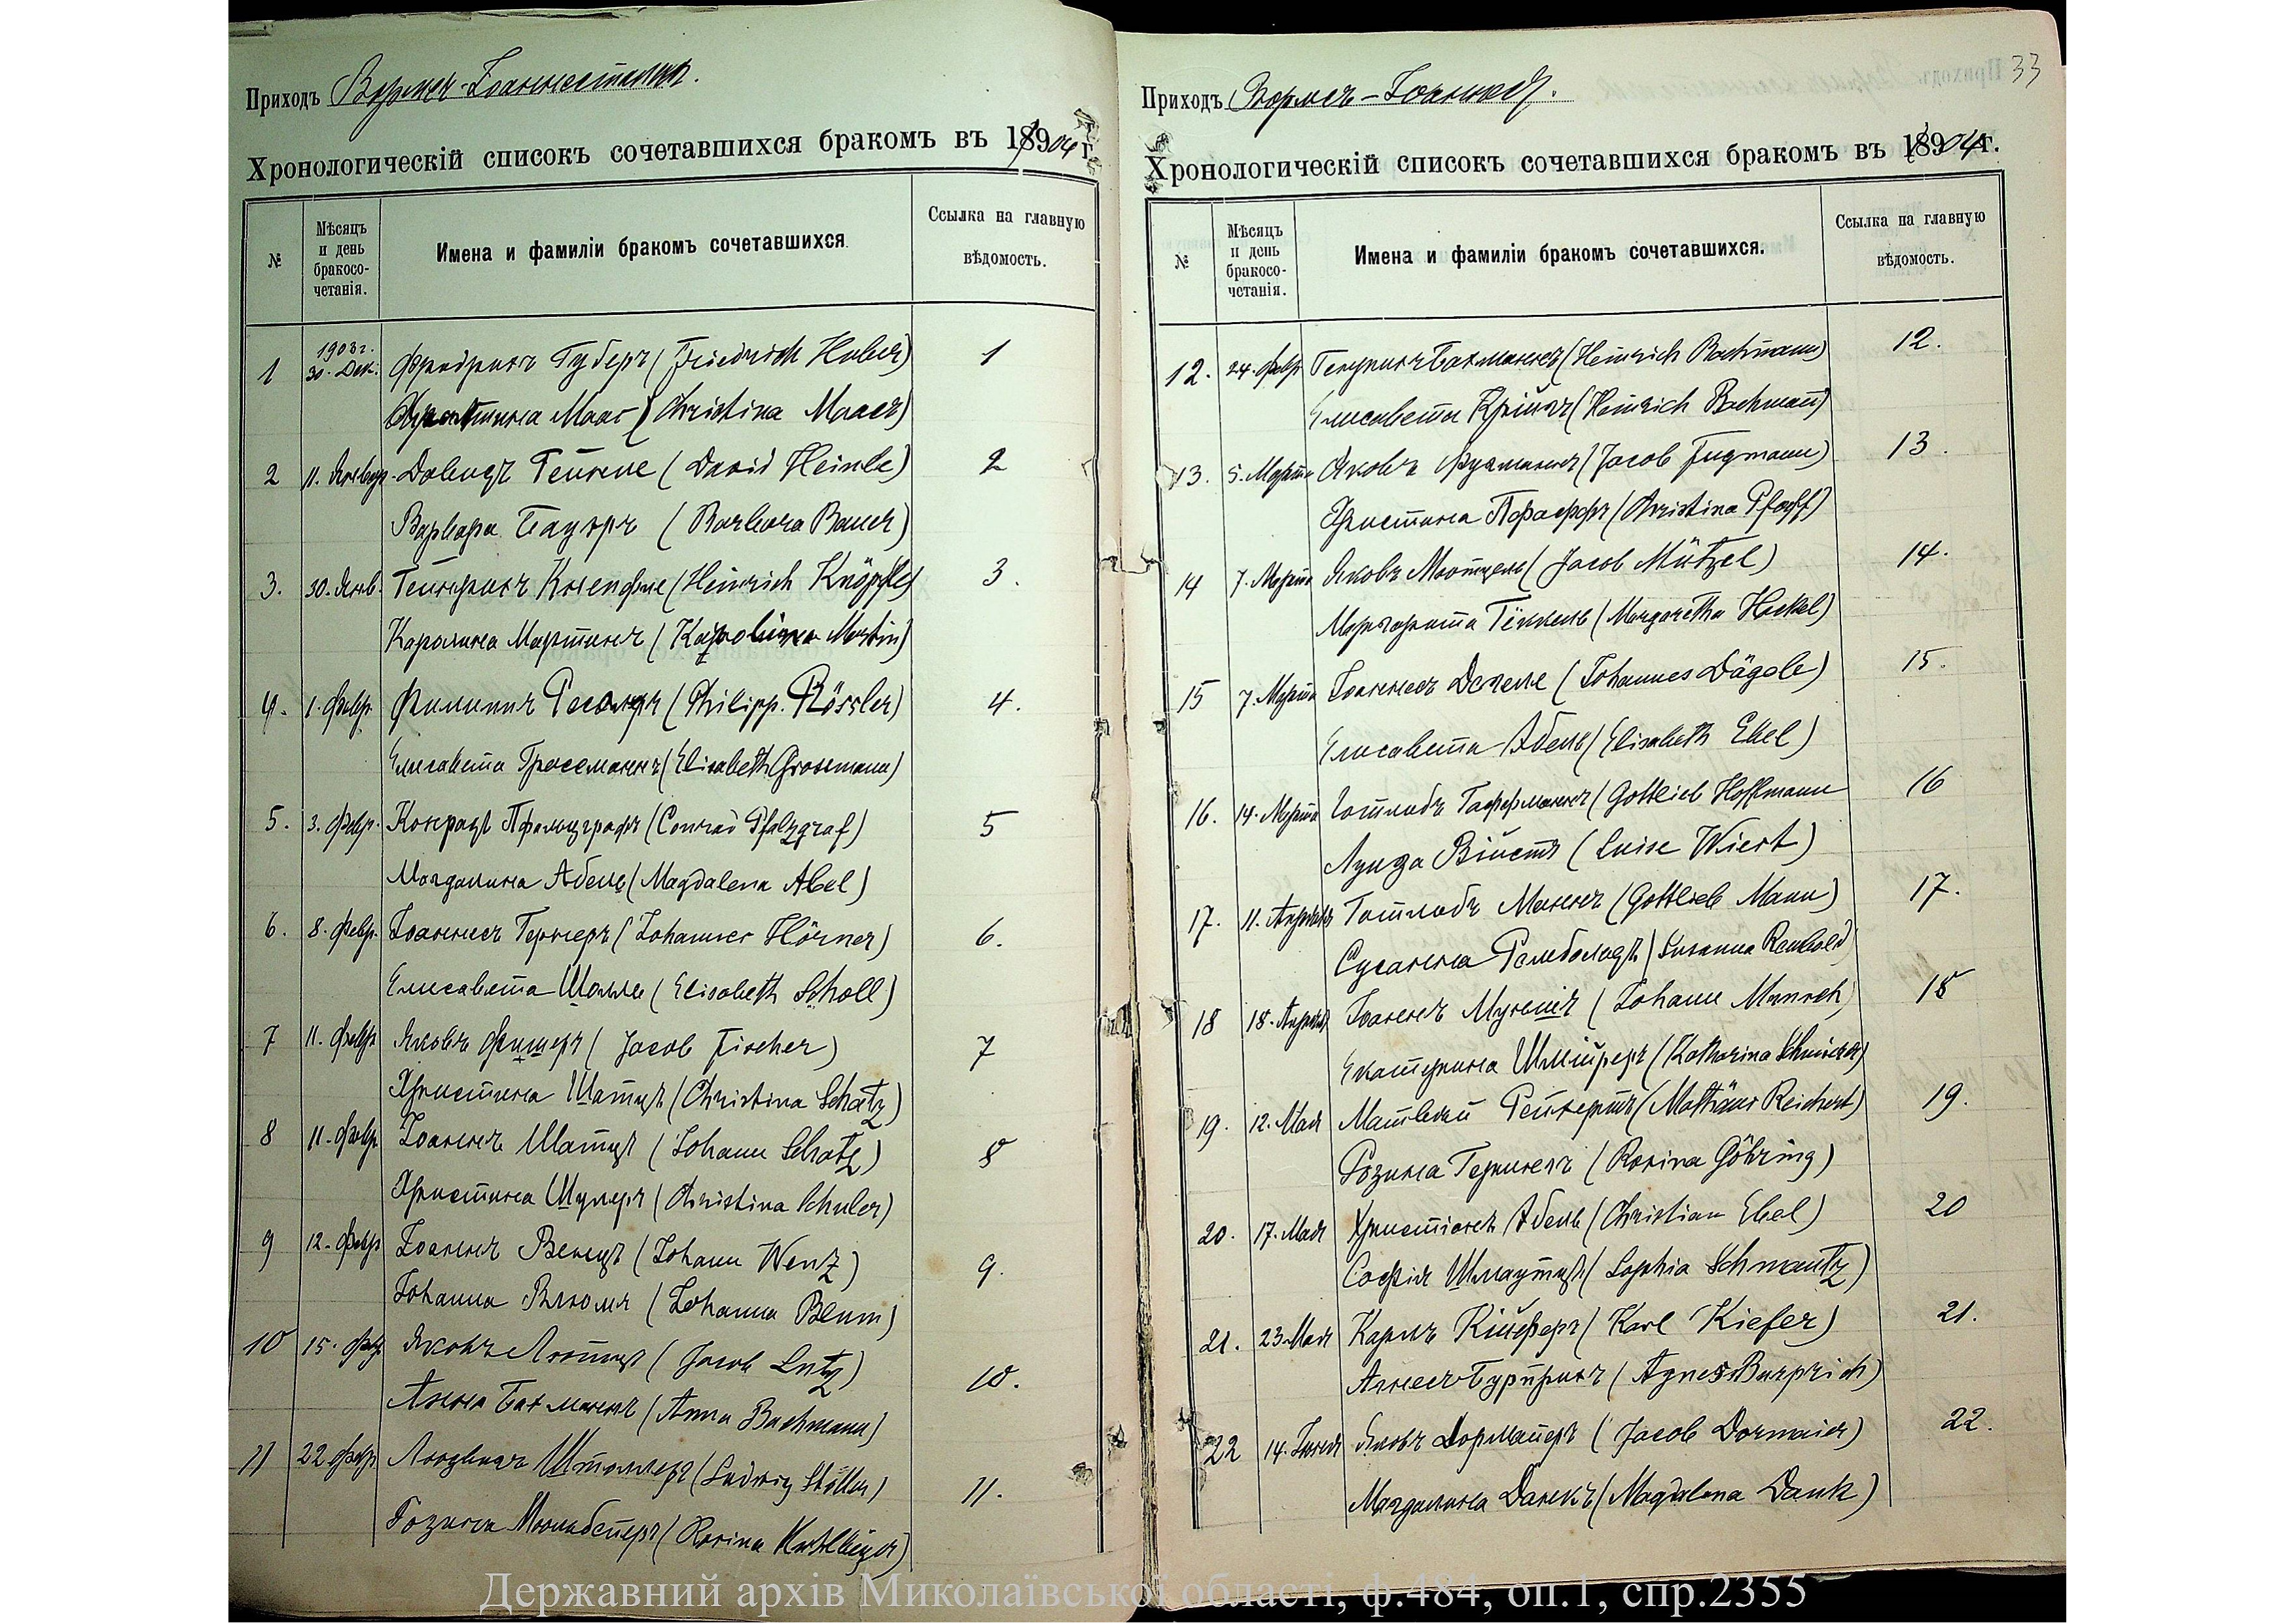 Приходъ Вормсъ-Іоаннестальъ.
Хронологическій списокъ сочетавшихся бракомъ въ 1904 г.
№
Мѣсяцъ
и день
бракосо-
четанія.
Имена и фамиліи бракомъ сочетавшихся.
Ссылка на главную
вѣдомость.
1903 г.
1 30. Дек. Фридрихъ Губеръ (Friedrich Huber) 1
Христина Маас (Christina Maaer)
2 11. Январ. Давидъ Гейнле (David Heinle) 2
Варвара Бауэръ (Barbara Bauer)
3. 30. Янв. Гейнрихъ Кнепфле (Heinrich Knöpfle) 3.
Каролина Мартинъ (Karolina Martin)
4. 1. Февр. Филиппъ Реслеръ (Philipp Rössler) 4.
Елисавета Гроссманнъ (Elisabeth Grossmann)
5. 3. Февр. Конрадъ Пфальцграфъ (Conrad Pfalzgraf) 5
Магдалина Абель (Magdalena Abel)
6. 8. Февр. Іоаннесъ Гернеръ (Johannes Hörner) 6.
Елисавета Шолль (Elisabeth Scholl)
7 11. Февр. Яковъ Фишеръ (Jacob Fischer) 7
Христина Шатцъ (Christina Schatz)
8 11. Февр. Іоаннъ Шатцъ (Johann Schatz) 8
Христина Шулеръ (Christina Schuler)
9 12. Февр Іоаннъ Венцъ (Johann Wenz) 9.
Іоhанна Блюмъ (Johanna Blum)
10 15. Фев Яковъ Лютцъ (Jacob Lutz) 10.
Анна Бахманнъ (Anna Bachmann)
11 22 Февр Людвигъ Штоллеръ (Ludwig Stoller) 11.
Розина Мюльбейеръ (Rosina
33
Приходъ Вормсъ-Іоаннсд.
Хронологическій списокъ сочетавшихся бракомъ въ 1904 г.
№
Мѣсяцъ
и день
бракосо-
четанія.
Имена и фамиліи бракомъ сочетавшихся.
Ссылка на главную
вѣдомость.
12. 24. Февр Генрихъ Бахманнъ (Heinrich Bachmann) 12.
Елисавета Крійгъ (Heinrich Bachmann)
13. 5. Марта Яковъ Фугманнъ (Jacob Fugmann) 13.
Христина Пфаффъ (Christina Pfaff)
14 7. Марта Яковъ Мютцель (Jacob Mützel) 14.
Маргарита Геккель (Margaretha Heckel)
15 7. Марта Іоаннесъ Дегеле (Johannes Dägele) 15.
Елисавета Эбель (Elisabeth Ebel)
16. 14. Марта Готлибъ Гоффманнъ (Gottlieb Hoffmann 16
Луиза Війстъ (Luise Wiest)
17. 11. Апрѣля Готлибъ Маннъ (Gottlieb Mann) 17.
Сусанна Рембольдъ (Susanna Rembold)
18 18. Апрѣля Іоаннъ Муншъ (Johann Munsch) 18
Екатерина Шмійреръ (Katharina
19. 12. Мая Матвѣй Рейхертъ (Mathäus Reichert) 19.
Розина Герингъ (Rosina Göhring)
20. 17. Мая Христіанъ Эбель (Christian Ebel) 20
Софія Шмаутцъ (Sophia Schmautz)
21. 23. Мая Карлъ Кійферъ (Karl Kiefer) 21.
Агнесъ (Agnes
22 14. Іюня Яковъ Дормайеръ (Jacob Dormaier) 22.
Магдалина Данкъ (Magdalena Dank)
Державний архів Миколаївської області, ф.484, оп.1, спр.2355